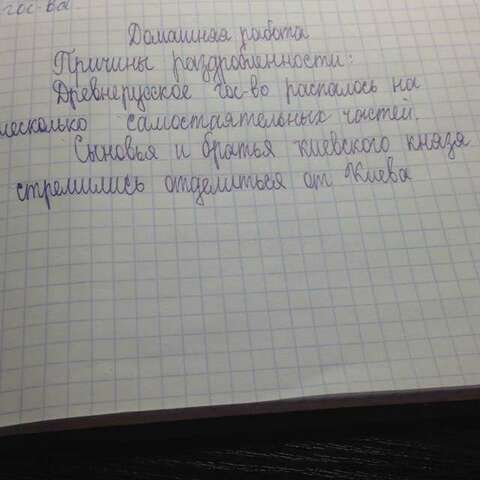 гос-ва
Домашняя работа
Причины раздробленности:
Древнерусское гос-во распалось на
несколько самостаятельных частей.
Сыновья и братья киевского князя
стремились отделиться от Киева